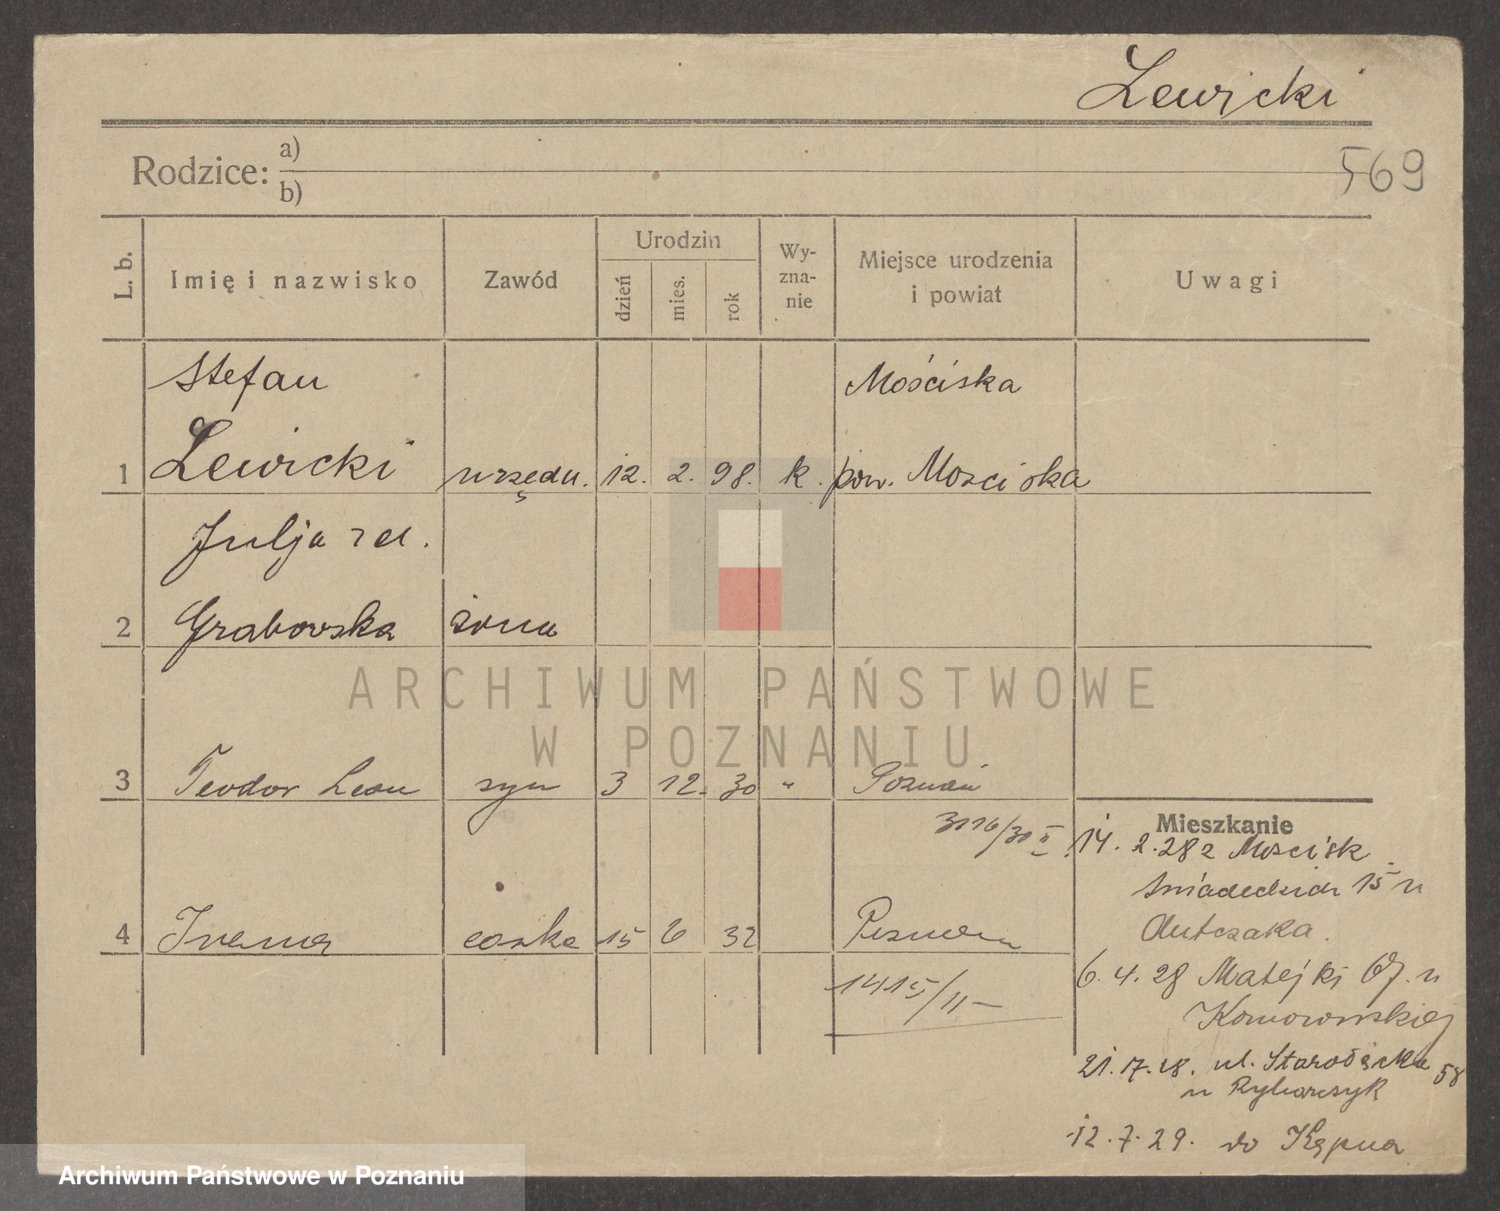 Lewicki
Rodzice: a)
b)
569
L. b.
Imię i nazwisko
Zawód
Urodzin
dzień
mies.
rok
Wy-
zna-
nie
Miejsce urodzenia
i powiat
Uwagi
Stefan
Mościska
1 Lewicki urzędn. 12. 2. 98. k. pow. Mosciska
Julja zd.
2 Grabowska żona
3 Teodor Leon syn 3 12. 30 " Poznań
3116/30 II
4 Irena corka 15 6 32 Poznan
1415/II
Mieszkanie
14. 2. 28 z Mościsk
Sniadeckich 15 u
Antczaka.
6. 4. 28 Matejki 67. u
Komorowskiej
21. 7. 28. ul. Starołęcka 58
u Rybarczyk
12. 7. 29. do Kępna
ARCHIWUM PAŃSTWOWE
W POZNANIU
Archiwum Państwowe w Poznaniu